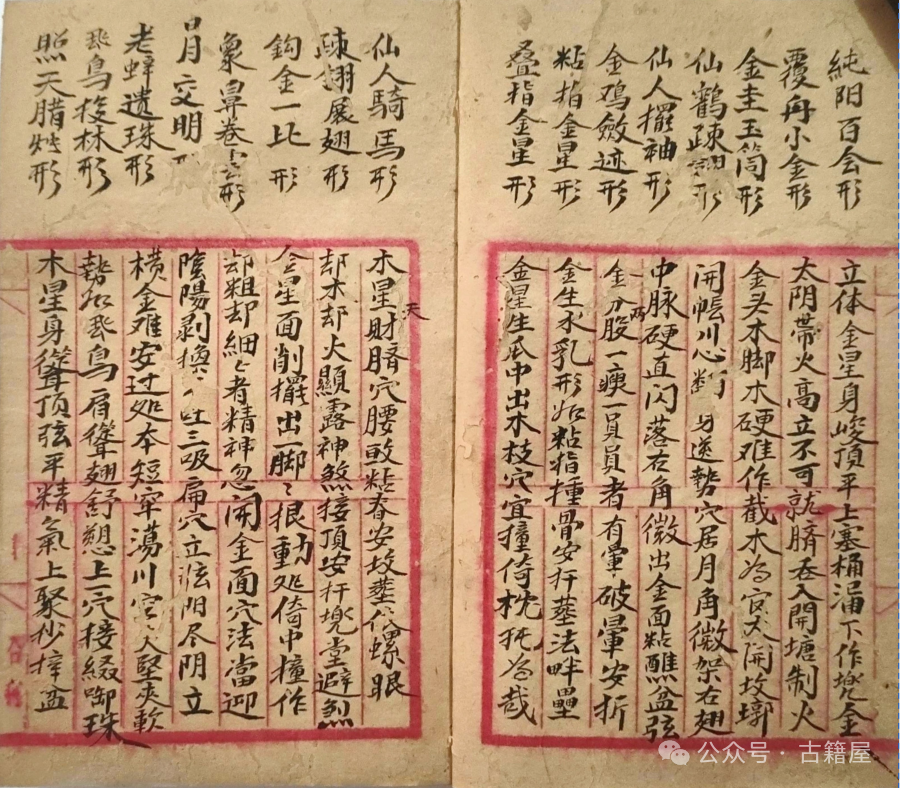 純阳百会形
覆舟小金形
金圭玉筒形
仙鶴疎翅形
仙人擺袖形
金鸡斂迹形
粘指金星形
叠指金星形
立体金星身峻頂平上塞桶涌下作堂金
太阴帶火高立不可就臍吞入開塘制火
金头木脚木硬难作截木为官大開坟墎
開帳川心对 身送勢穴居月角微架右翅
中脉硬直闪落右角微出金面粘醮盆弦
金分两股一瘦一員員者有暈破暈安折
金生水乳形如粘指撞骨安扦塟法畔壘
金星生瓜中出木枝穴宜撞倚枕 为哉
仙人騎馬形
疎翅展翅形
鈎金一比形
象鼻卷云形
日月交明形
老蚌遺珠形
飛鳥投林形
照天腊烛形
木星財臍穴腰天 粘脊安坟塟 螺眼
却木却火顯露神煞接頂安扦堂避煞
金星面削擺出一脚〻根動处倚中撞作
却粗却細〻者精神忽開金面穴法當迎
陰陽剥換 吐三吸扁穴立弦阳尽阴立
横金难安过处本短窄蕩川宫 堅夾軟
勢如飛鳥肩聳翅舒塑上一穴接綴啣珠
木星身聳頂弦平精氣上聚抄 盆
公众号·古籍屋